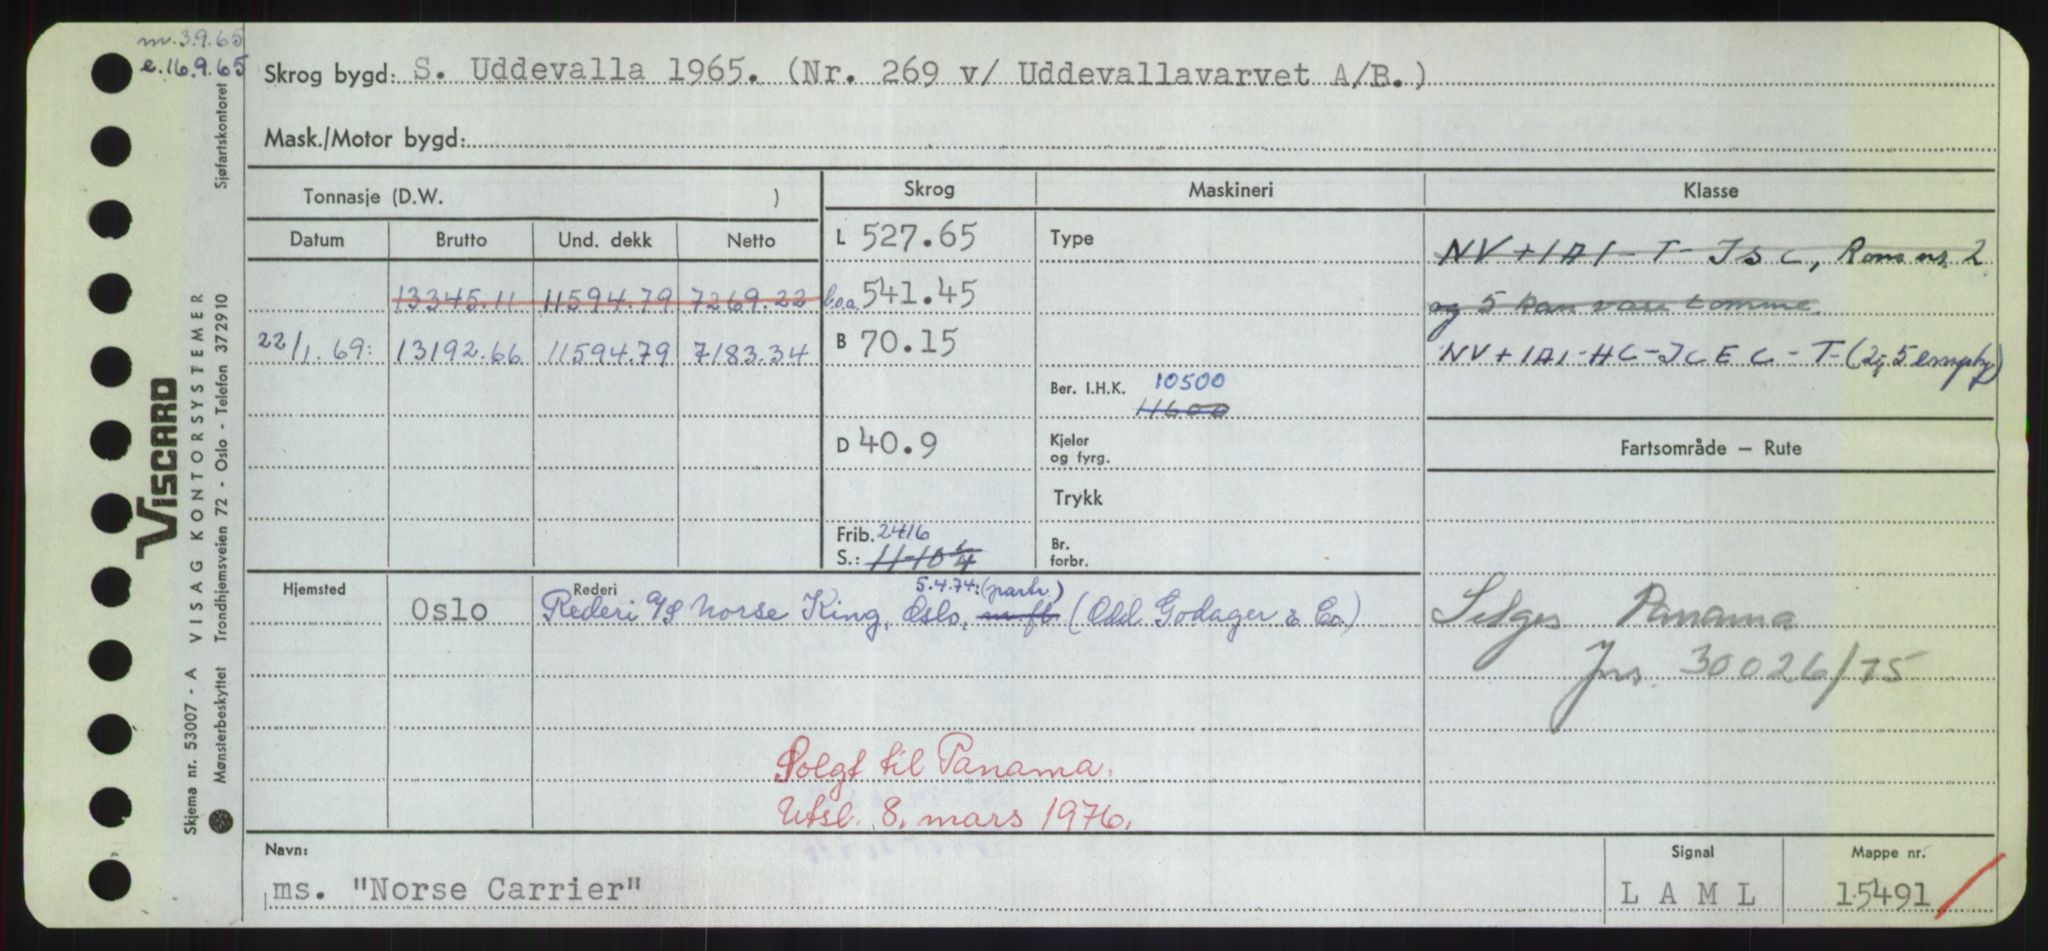 m. 3.9.65
e. 16.9.65
Skrog bygd: S. Uddevalla 1965. (Nr. 269 v/ Uddevallavarvet A/B.)
Mask./Motor bygd:
Tonnasje (D.W. )
Skrog
Maskineri
Klasse
Datum
Brutto
Und. dekk
Netto
L 527.65
Type
NV + 1A1 - T - JSC, Rom nr. 2
13345.11 11594.79 7269.22
b.o.a. 541.45
og 5 kan være tomme.
22/1.69: 13192.66 11594.79 7183.34
B 70.15
NV + 1A1 - HC - JCEC - T - (2, 5 empty)
Ber. I.H.K. 10500
11600
D 40.9
Kjeler
og fyrg.
Fartsområde – Rute
Trykk
Frib. 2416
S.: 11-10 1/4
Br.
forbr.
Hjemsted
Rederi
5.4.74: (partr.)
Oslo
Rederi I/S Norse King, Oslo, m.fl. (Odd Godager & Co.)
Selges Panama
Jnr. 30026/75
Solgt til Panama.
Utsl. 8. mars 1976.
Navn:
Signal
Mappe nr.
ms. "Norse Carrier"
L A M L
15491
Sjøfartskontoret
VISCARD
VISAG KONTORSYSTEMER
Trondhjemsveien 72 - Oslo - Telefon 372910
Skjema nr. 53007 - A
Mønsterbeskyttet